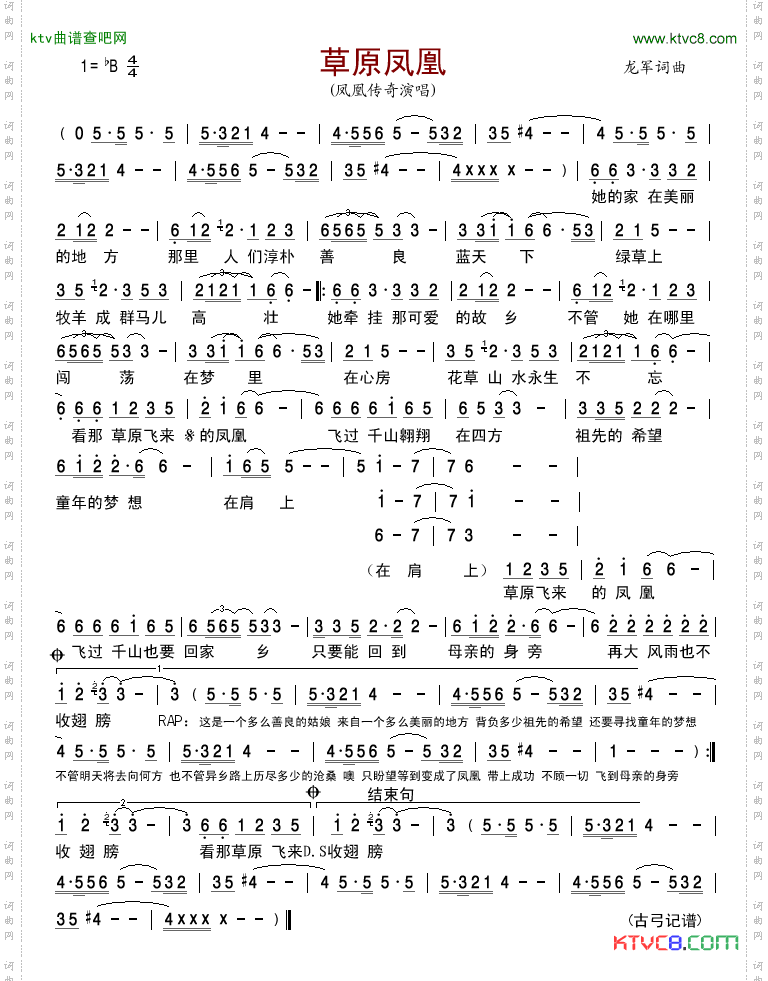 ktv曲谱查吧网
www.ktvc8.com
草原凤凰
1= ♭B 4/4
龙军词曲
(凤凰传奇演唱)
( 0 5·5 5· 5 | 5·321 4 - - | 4·556 5 - 532 | 35 #4 - - | 4 5·5 5·5 |
5·321 4 - - | 4·556 5 - 532 | 35 #4 - - | 4xxx x - - ) | 6 6 3·3 3 2 |
她的家 在美丽
2 12 2 - - | 6 12 2· 1 2 3 | 6565 53 3 - | 3 31 16 6· 53 | 2 1 5 - |
的地 方 那里 人 们淳朴 善 良 蓝天 下 绿草上
3 5 2· 3 5 3 | 2121 16 6 - |: 6 6 3·3 3 2 | 2 12 2 - - | 6 12 2· 1 2 3 |
牧羊 成 群马儿 高 壮 她牵 挂 那可爱 的故 乡 不管 她 在哪里
6565 53 3 - | 3 31 16 6· 53 | 2 1 5 - | 3 5 2· 3 5 3 | 2121 16 6 - |
闯 荡 在梦 里 在心房 花草 山 水永生 不 忘
6 6 6 1 2 3 5 | 2 1 6 6 - | 6 6 6 6 1 6 5 | 6 5 3 3 - | 3 3 5 2 2 2 - |
看那 草原飞来 𝄋的凤凰 飞过 千山翱翔 在四方 祖先的 希望
6 1 2 2· 6 6 - | 1 6 5 5 - - | 5 1 - 7 | 7 6 - - |
童年的梦 想 在肩 上 1 - 7 | 7 1 - - |
6 - 7 | 7 3 - - |
(在 肩 上) 1 2 3 5 | 2 1 6 6 - |
草原飞来 的 凤 凰
6 6 6 6 1 6 5 | 6 565 533 - | 3 3 5 2·2 2 - | 6 1 2 2· 6 6 - | 6 2 2 2 2 2 2 |
飞过 千山也要 回家 乡 只要能 回 到 母亲的 身 旁 再大 风雨也不
1
1 2 3 3 - | 3 ( 5·5 5·5 | 5·321 4 - - | 4·556 5 - 532 | 35 #4 - - |
收翅 膀 RAP: 这是一个多么善良的姑娘 来自一个多么美丽的地方 背负多少祖先的希望 还要寻找童年的梦想
4 5·5 5·5 | 5·321 4 - - | 4·556 5 - 532 | 35 #4 - - | 4 - - - ) :|
不管明天将去向何方 也不管异乡路上历尽多少的沧桑 噢 只盼望等到变成了凤凰 带上成功 不顾一切 飞到母亲的身旁
2 结束句
1 2 3 3 - | 3 6 6 1 2 3 5 | 1 2 3 3 - | 3 ( 5·5 5·5 | 5·321 4 - - |
收 翅 膀 看那草原 飞来D.S收翅 膀
4·556 5 - 532 | 35 #4 - - | 4 5·5 5·5 | 5·321 4 - - | 4·556 5 - 532 |
35 #4 - - | 4xxx x - ) ||
(古弓记谱)
KTVC8.COM
词曲网